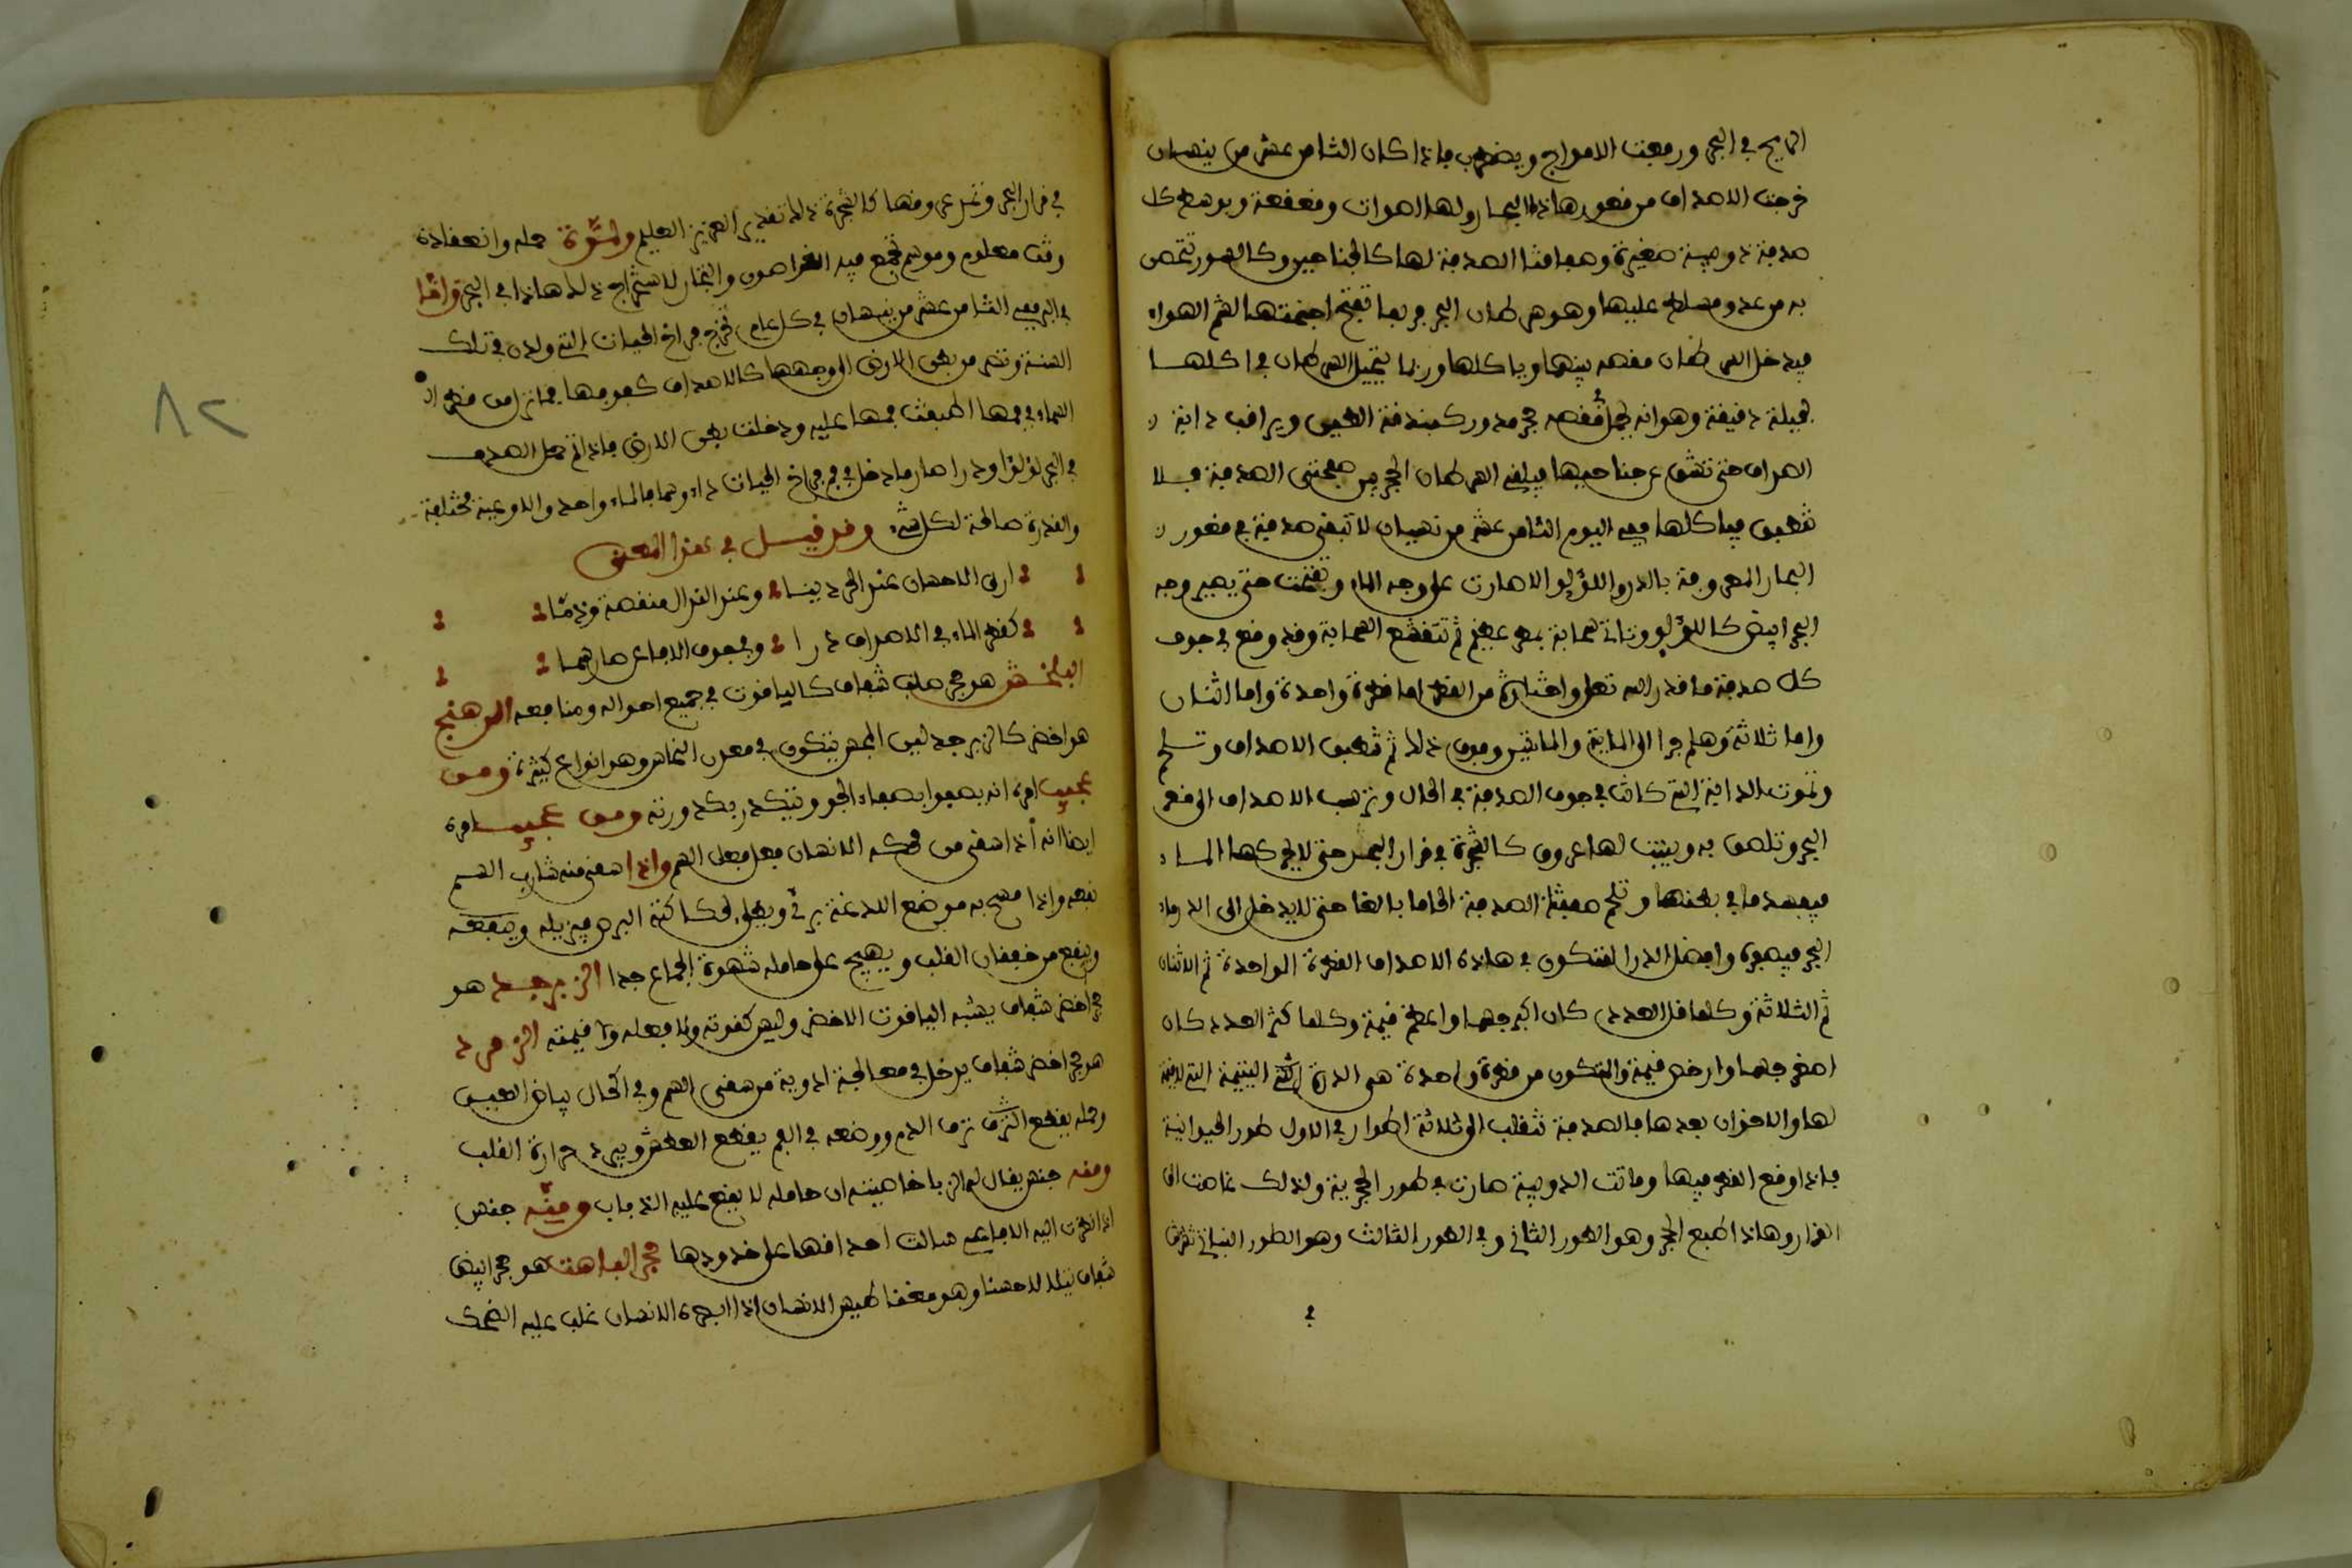 الريح في البحر ورمعت الامواج ويضطرب فاذا كان الثامن عشر من نيسان
خرجت الاصداف من قعور هاذه البحار ولها اصوات وقعقعة وبوسط كل
صدفة دويبة صغيرة وصفحتا الصدفة لها كالجناحين وكالسور تتحصن
به من عدو مسلط عليها وهو سرطان البحر فربما تفتح اجنحتها لشم الهواء
فيدخل السرطان مقصه بينها وياكلها وربما يتحيل السرطان في اكلها
بحيلة دقيقة وهو انه يحمل في مقصه حجر مدور كبندقة الطين ويراقب دابة
الصدف حتى تشق عن جناحيها فيلقي السرطان الحجر بين صفحتي الصدفة فلا
تنطبق فياكلها ففي اليوم الثامن عشر من نيسان لا تبقى صدفة في قعور
البحار المعروفة بالدر واللؤلؤ الا صارت على وجه الماء وتفتحت حتى يصير وجه
البحر ابيض كاللؤلؤ وتاتي سحابة بمطر عظيم ثم تتقشع السحابة وقد وقع في جوف
كل صدفة ما قدر الله تعلى واختاره من القطر اما قطرة واحدة واما اثنان
واما ثلاثة وهلم جرا الى المائة والمائتين وفوق ذلك ثم تنطبق الاصداف وتلتحم
وتموت الدابة التي كانت في جوف الصدفة في الحال وترسب الاصداف الى قعر
البحر وتلصق به وينبت لها عروق كالشجرة في قرار البحر حتى لا يحركها الماء
فيفسد ما في بطنها وتلتحم صفحتا الصدفة التحاما بالغا حتى لا يدخل الى الدر ماء
البحر فيصفره وافضل الدر المتكون في هاذه الاصداف القطرة الواحدة ثم الاثنان
ثم الثلاثة وكلما قل العدد كان اكبر جسما واعظم قيمة وكلما كثر العدد كان
اصغر جسما وارخص قيمة والمتكون من قطرة واحدة هي الدرة اليتيمة التي لا قيمة
لها والاخران بعدها فالصدفة تنقلب الى ثلاثة اطوار في الاول طور الحيوانية
فاذا وقع القطر فيها وماتت الدويبة صارت في طور الحجرية ولذلك غاصت الى
القرار وهاذا طبع الحجر وهو الطور الثاني وفي الطور الثالث وهو الطور النباتي تشرش
في
في قرار البحر وتمد عروقها كالشجرة ذلك تقدير العزيز العليم ولمدة حمله وانعقاده
وقت معلوم وموسم تجتمع فيه الغواصون والتجار لاستخراج ذلك هاذا في البحر واما
في البر ففي الثامن عشر من نيسان في كل عام تخرج فراخ الحيات التي ولدت في تلك
السنة وتسير من بطن الارض الى وجهها كالاصداف
السماء في فمها اطبقت فمها عليه ودخلت بطن الارض فاذا تم حمل الصدف
في البحر لؤلؤا ودرا صار ما دخل في فم فراخ الحيات داء وسما فالماء واحد والاوعية مختلفة
والقدرة صالحة لكل شيء وقد قيل في هذا المعنى
ارى الاحسان عند الحر دينا وعند النذل منقصة وذما
كقطر الماء في الاصداف درا وفي جوف الافاعي صار سما
البلخش هو حجر صلب شفاف كالياقوت في جميع احواله ومنافعه الدهنج
هو اخضر كالزبرجد لين المجس يتكون في معدن النحاس وهو انواع كثيرة ومن
عجيب امره انه يصفوا بصفاء الجو ويتكدر بكدورته ومن عجيب امره
ايضا انه اذا سقي من محكه الانسان فعل فعل السم واذا سقي منه شارب السم
نفعه واذا مسح به موضع اللدغة برئ ويطلى بحكاكته البرص فيزيله وينفعه
وينفع من خفقان القلب ويهيج على حامله شهوة الجماع جدا الزبرجد هو
حجر اخضر شفاف يشبه الياقوت الاخضر وليس كقوته ولا فعله ولا قيمته الزمرد
هو حجر اخضر شفاف يدخل في معالجة ادوية من سقي السم وفي اكحال بياض العين
وحمله يقطع نزف الدم ووضعه في الفم يقطع العطش ويبرد حرارة القلب
ومنه جنس يقال له الزبا خاصيته ان حامله لا يقع عليه الذباب ومنه جنس
اذا نظرت اليه الافاعي سالت احداقها على خدودها حجر الباهت هو حجر ابيض
شفاف يتلالا حسنا وهو مغناطيس الانسان اذا ابصره الانسان غلب عليه الضحك
٨٢